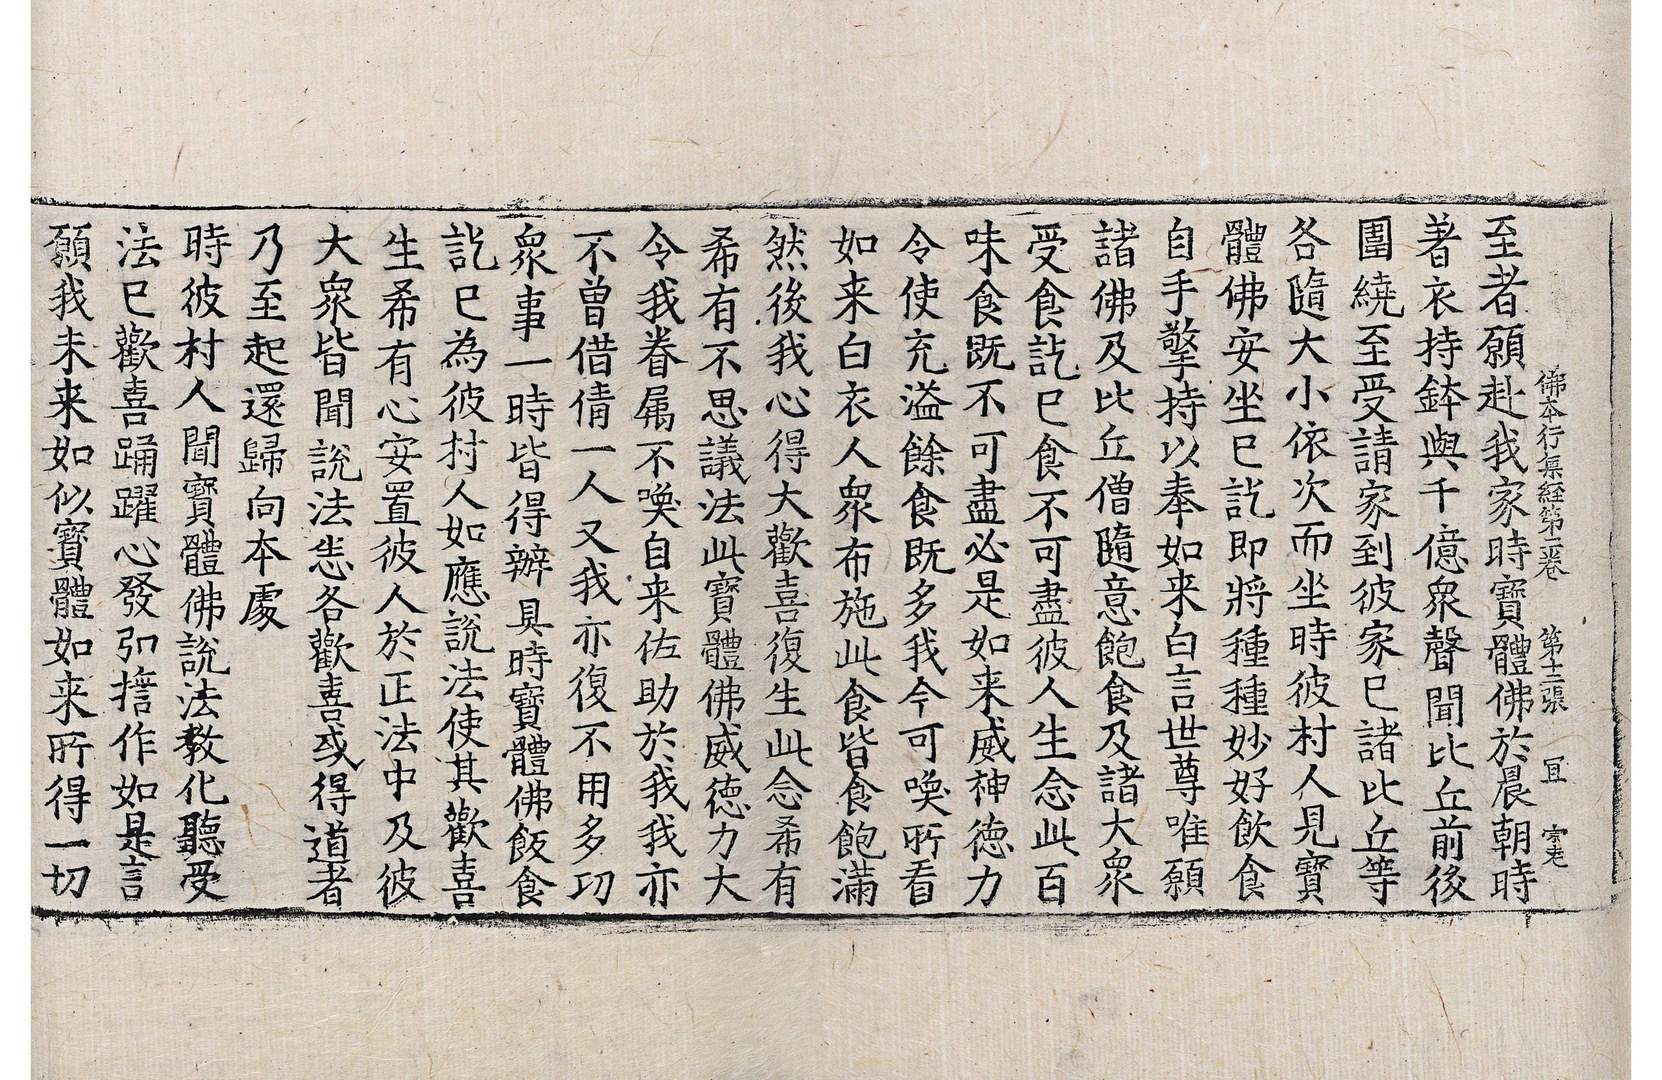 佛本行集經第二卷　第十二張　宜
至者願赴我家時寶體佛於晨朝時
著衣持鉢與千億眾聲聞比丘前後
圍繞至受請家到彼家已諸比丘等
各隨大小依次而坐時彼村人見寶
體佛安坐已訖即將種種妙好飲食
自手擎持以奉如来白言世尊唯願
諸佛及比丘僧隨意飽食及諸大眾
受食訖已食不可盡彼人生念此百
味食既不可盡必是如来威神德力
令使充溢餘食既多我今可喚所看
如来白衣人眾布施此食皆食飽滿
然後我心得大歡喜復生此念希有
希有不思議法此寶體佛威德力大
令我眷属不喚自来佐助於我我亦
不曾借倩一人又我亦復不用多功
眾事一時皆得辦具時寶體佛飯食
訖已為彼村人如應說法使其歡喜
生希有心安置彼人於正法中及彼
大眾皆聞說法恙各歡喜或得道者
乃至起還歸向本處
時彼村人聞寶體佛說法教化聽受
法已歡喜踊躍心發弘誓作如是言
願我未来如似寶體如来所得一切